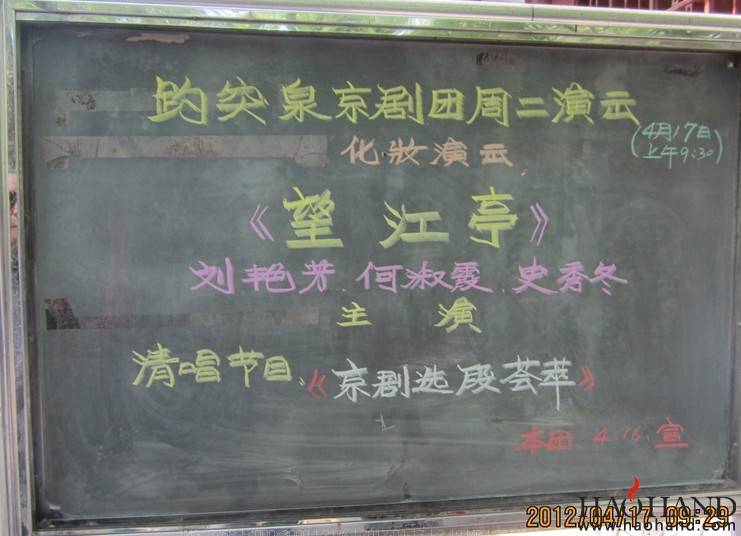 趵突泉京剧团周二演示
(4月17日
上午9:30)
化妝演示
《望江亭》
刘艳芳 何淑霞 史秀冬
主演
清唱节目《京剧选段荟萃》
本团 4.16.宣
HAOHAND
www.haohand.com
2012/04/17 09:29